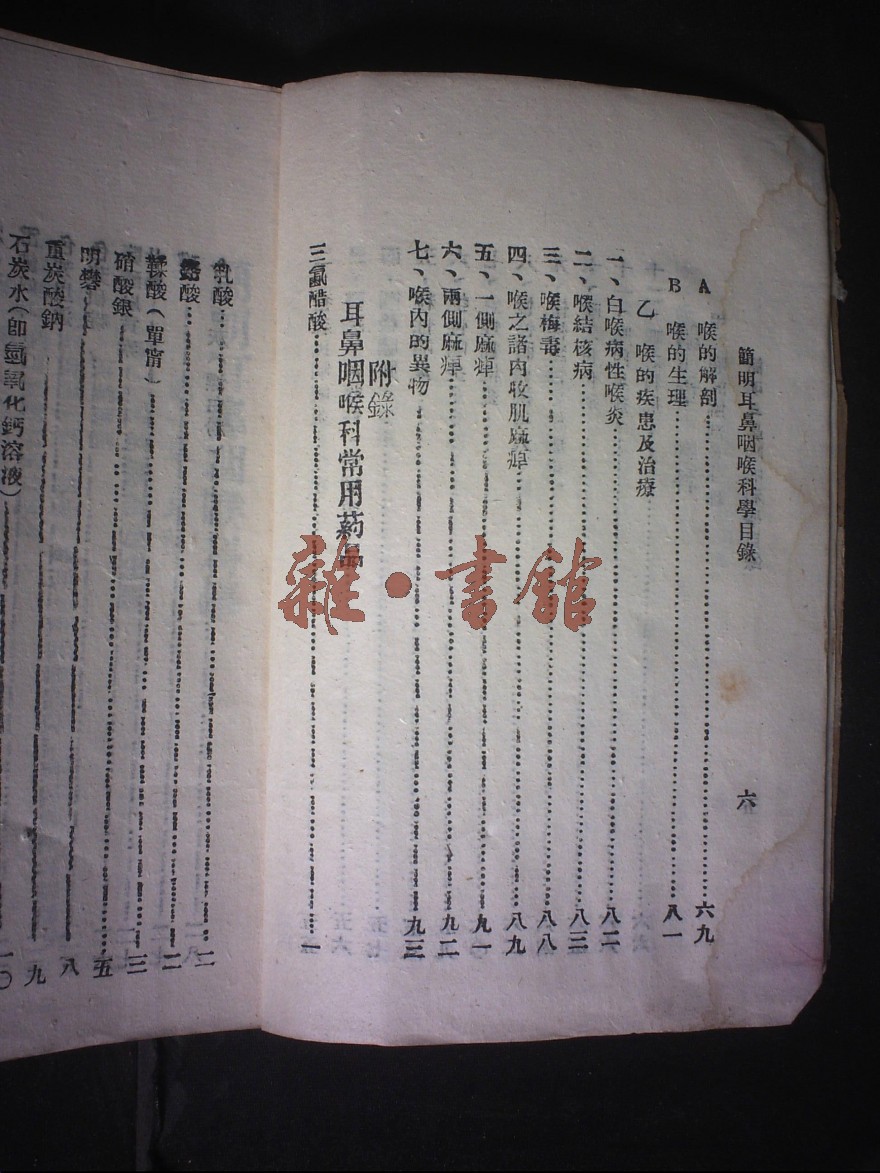 簡明耳鼻咽喉科學目錄 六
A 喉的解剖 六九
B 喉的生理 八一
乙 喉的疾患及治療
一、白喉病性喉炎 八二
二、喉結核病 八三
三、喉梅毒 八八
四、喉之諸內收肌麻痺 八九
五、一側麻痺 九一
六、兩側麻痺 九二
七、喉內的異物 九三
附錄
耳鼻咽喉科常用葯品
三氯醋酸 一
乳酸 二
鉻酸 二
鞣酸(單甯) 三
硝酸銀 五
明礬 八
重炭酸鈉 九
石炭水(即氫氧化鈣溶液) 一〇
雜·書館